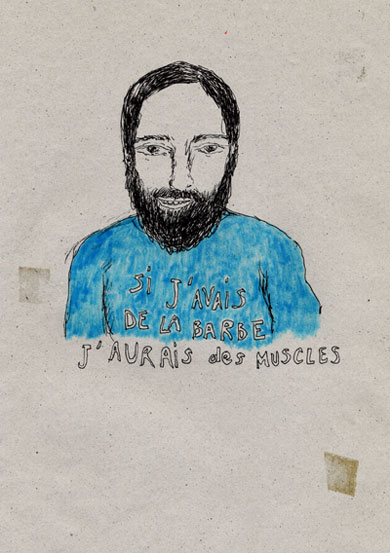 SI J'AVAIS
DE LA BARBE
J'AURAIS des MUSCLES